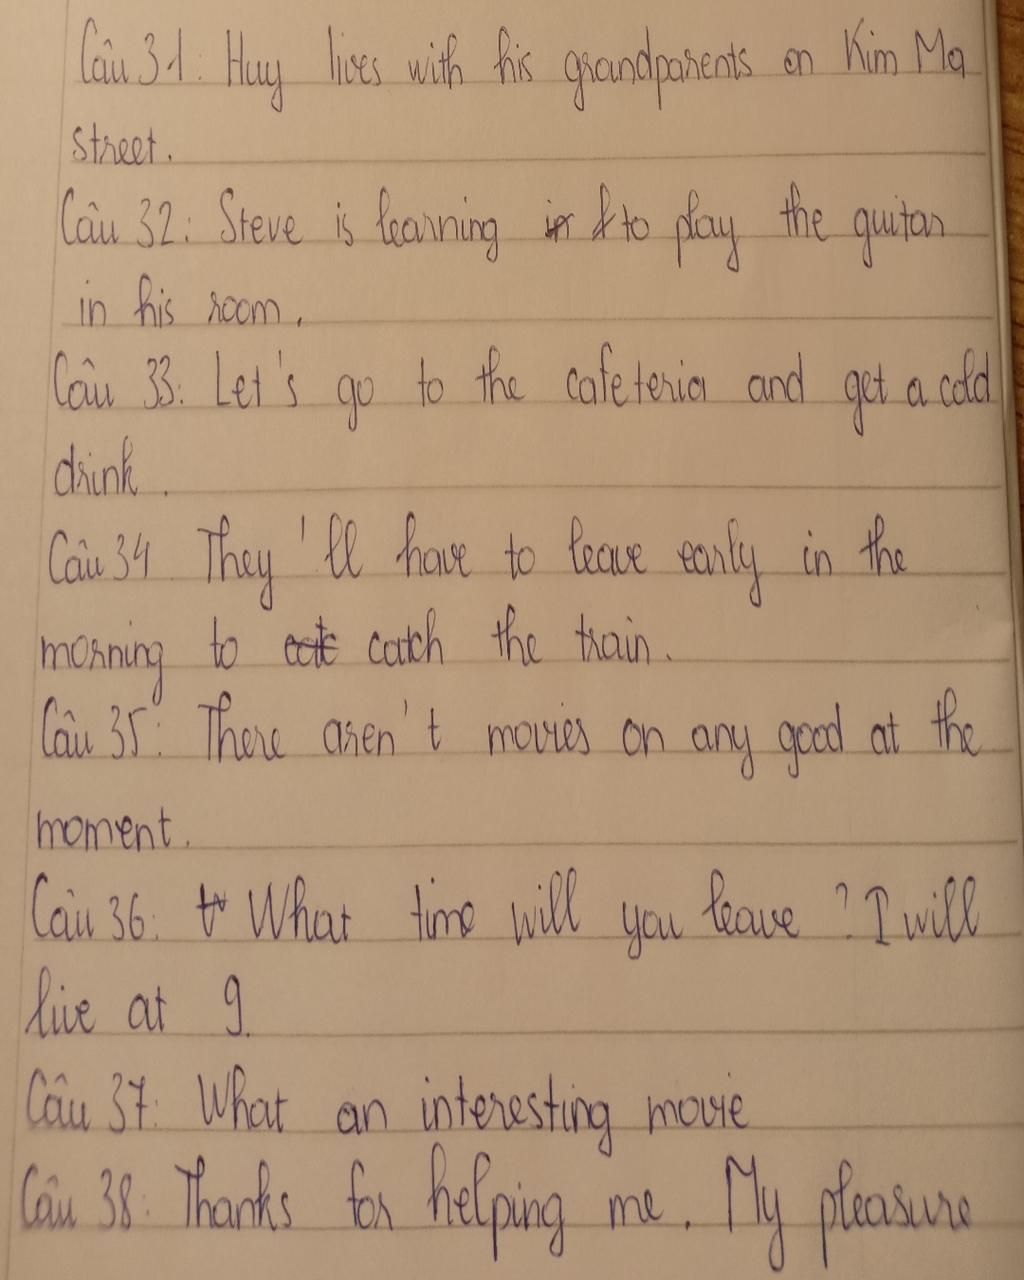 Câu 31: Huy lives with his grandparents on Kim Ma
street.
Câu 32: Steve is learning to play the guitar
in his room.
Câu 33: Let's go to the cafeteria and get a cold
drink.
Câu 34 They'll have to leave early in the
morning to catch the train.
Câu 35: There aren't movies on any good at the
moment.
Câu 36: What time will you leave? I will
live at 9.
Câu 37: What an interesting movie
Câu 38: Thanks for helping me. My pleasure